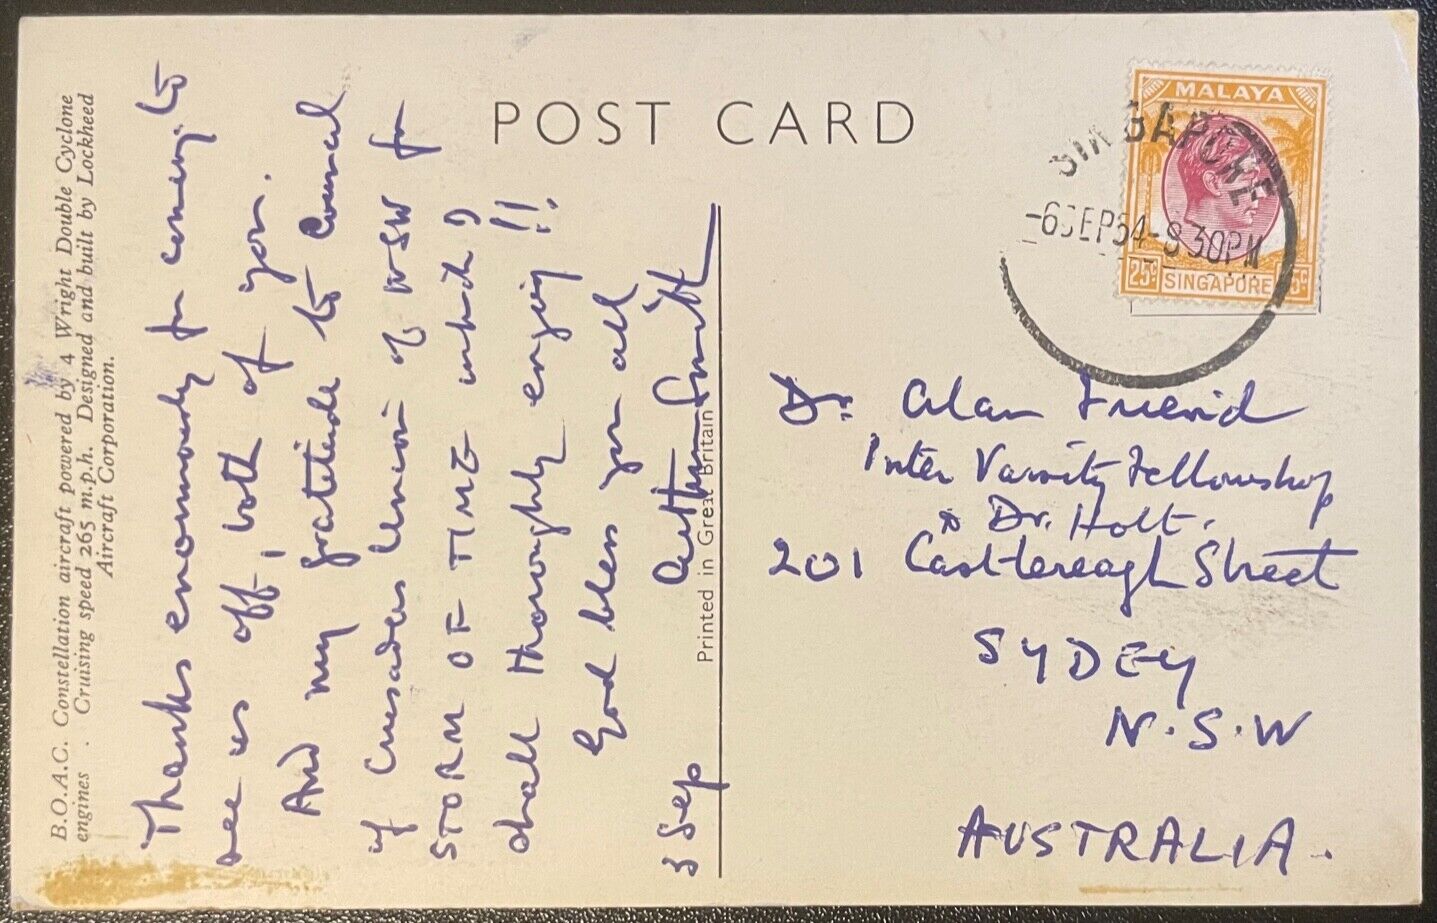 B.O.A.C. Constellation aircraft powered by 4 Wright Double Cyclone
engines . Cruising speed 265 m.p.h. Designed and built by Lockheed
Aircraft Corporation.
Thanks enormously for coming to
see us off, both of you.
And my gratitude to Council
of Crusaders Union of NSW for
STORM OF TIME which I
shall thoroughly enjoy!!
God bless you all
3 Sep Arthur Smith
Printed in Great Britain
POST CARD
MALAYA
25c SINGAPORE
SINGAPORE
-6SEP54-8 30PM
Dr. Alan Friend
Inter Varsity Fellowship
Dr. Holt.
201 Castlereagh Street
SYDEY
N.S.W
AUSTRALIA.